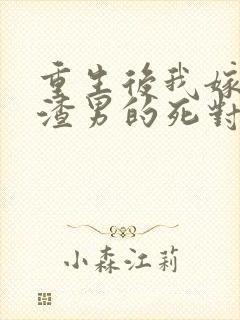 重生後我嫁
渣男的死對
小森江莉